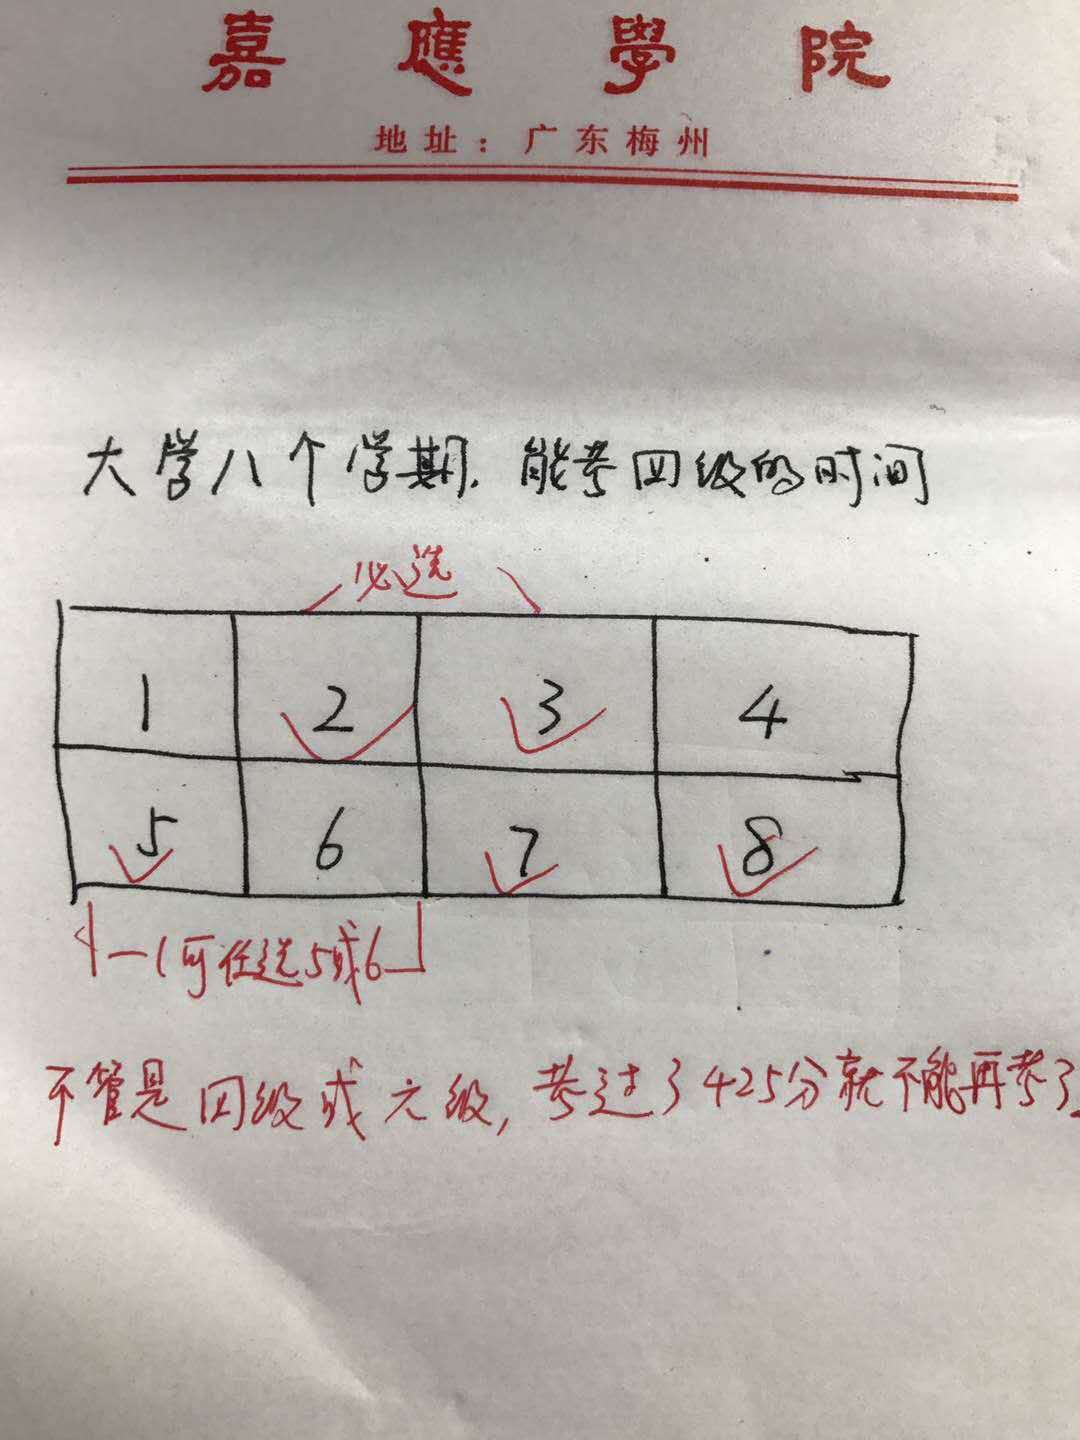 嘉應學院
地址：广东梅州
大学八个学期.能考四级的时间
必选
1 2 3 4
5 6 7 8
可任选5或6
不管是四级或六级,考过了425分就不能再考了.